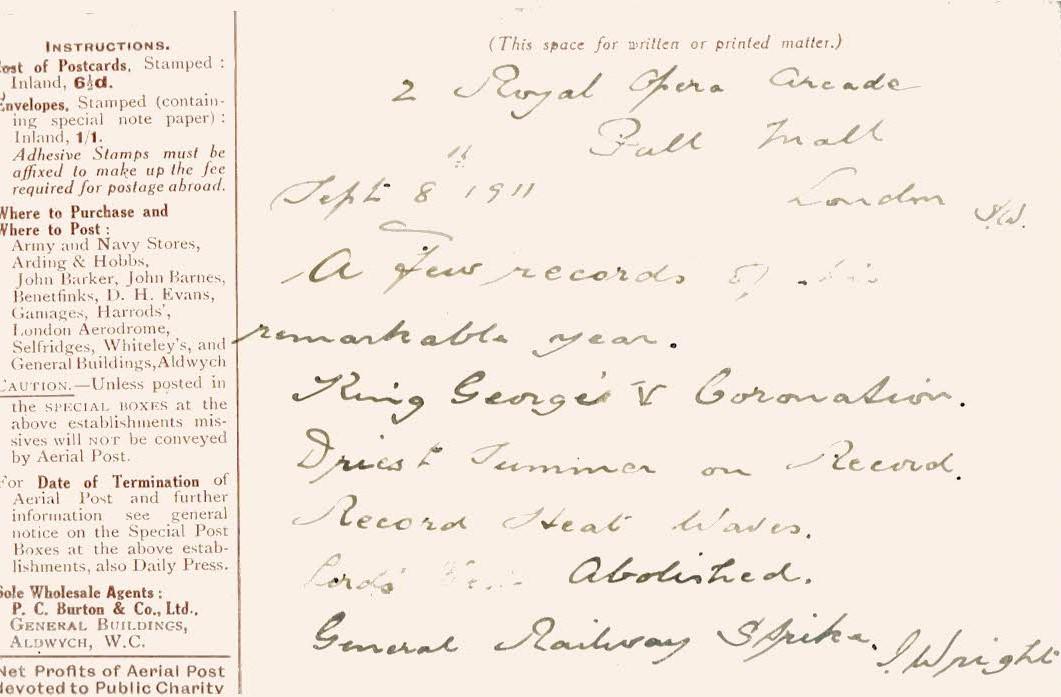 INSTRUCTIONS.
Cost of Postcards, Stamped :
Inland, 6½d.
Envelopes, Stamped (contain-
ing special note paper) :
Inland, 1/1.
Adhesive Stamps must be
affixed to make up the fee
required for postage abroad.
Where to Purchase and
Where to Post :
Army and Navy Stores,
Arding & Hobbs,
John Barker, John Barnes,
Benetfinks, D. H. Evans,
Gamages, Harrods',
London Aerodrome,
Selfridges, Whiteley's, and
General Buildings, Aldwych
CAUTION.—Unless posted in
the SPECIAL BOXES at the
above establishments mis-
sives will NOT be conveyed
by Aerial Post.
For Date of Termination of
Aerial Post and further
information see general
notice on the Special Post
Boxes at the above estab-
lishments, also Daily Press.
Sole Wholesale Agents :
P. C. Burton & Co., Ltd.,
GENERAL BUILDINGS,
ALDWYCH, W.C.
Net Profits of Aerial Post
devoted to Public Charity
(This space for written or printed matter.)
2 Royal Opera Arcade
Pall Mall
Sept 8th 1911 London S.W.
A few records of
remarkable year.
King George's V Coronation.
Driest Summer on Record.
Record Heat Waves.
Lords' Abolished.
General Railway Strike. J. Wright